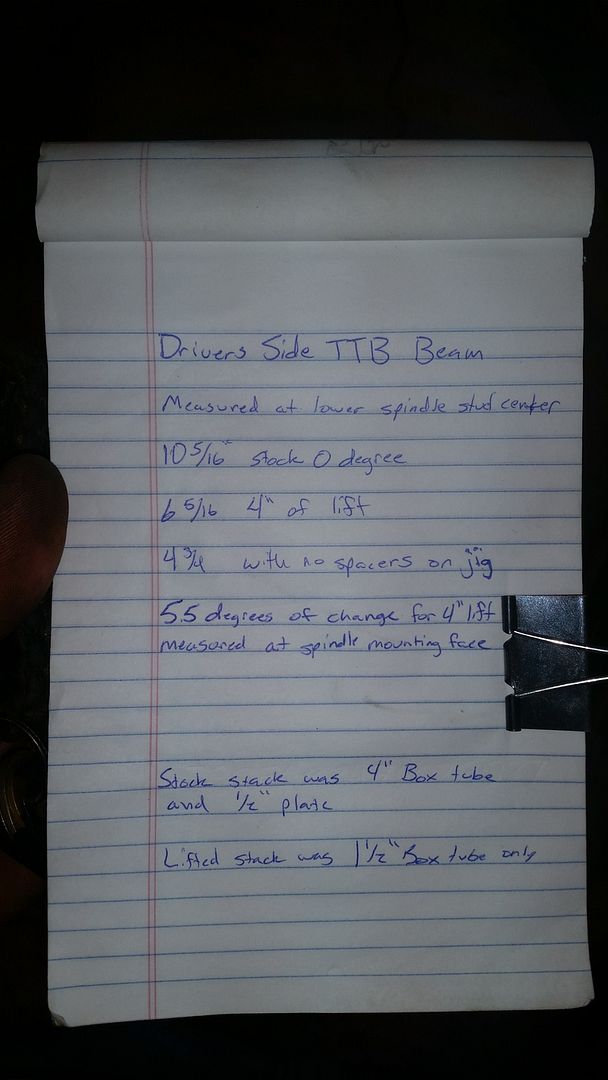 Drivers Side TTB Beam
Measured at lower spindle stud center
10 5/16" stock 0 degree
6 5/16 4" of lift
4 3/4 with no spacers on jig
5.5 degrees of change for 4" lift
measured at spindle mounting face
Stock stack was 4" Box tube
and 1/2" plate
Lifted stack was 1 1/2" Box tube only